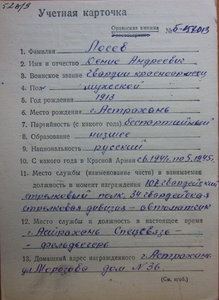 52и/9
Учетная карточка
Орденская книжка
№ Б-
1. Фамилия Лосев
2. Имя и отчество Денис Андреевич
3. Воинское звание гвардии красноармеец
4. Пол мужской
5. Год рождения 1913
6. Место рождения г. Астрахань
7. Партийность (с какого года) беспартийный
8. Образование низшее
9. Национальность русский
10. С какого года в Красной Армии с 6.1941. по 5.1945.
11. Место службы (наименование части) в занимаемая
должность в момент награждения 107 гвардейский
стрелковый полк. 34 гвардейская
стрелковая дивизия - автоматчик
12. Место службы и должность в настоящее время
Астрахань
13. Домашний адрес награжденного г. Астрахань
ул. Морозова дом № 36.
(См. н/об.)